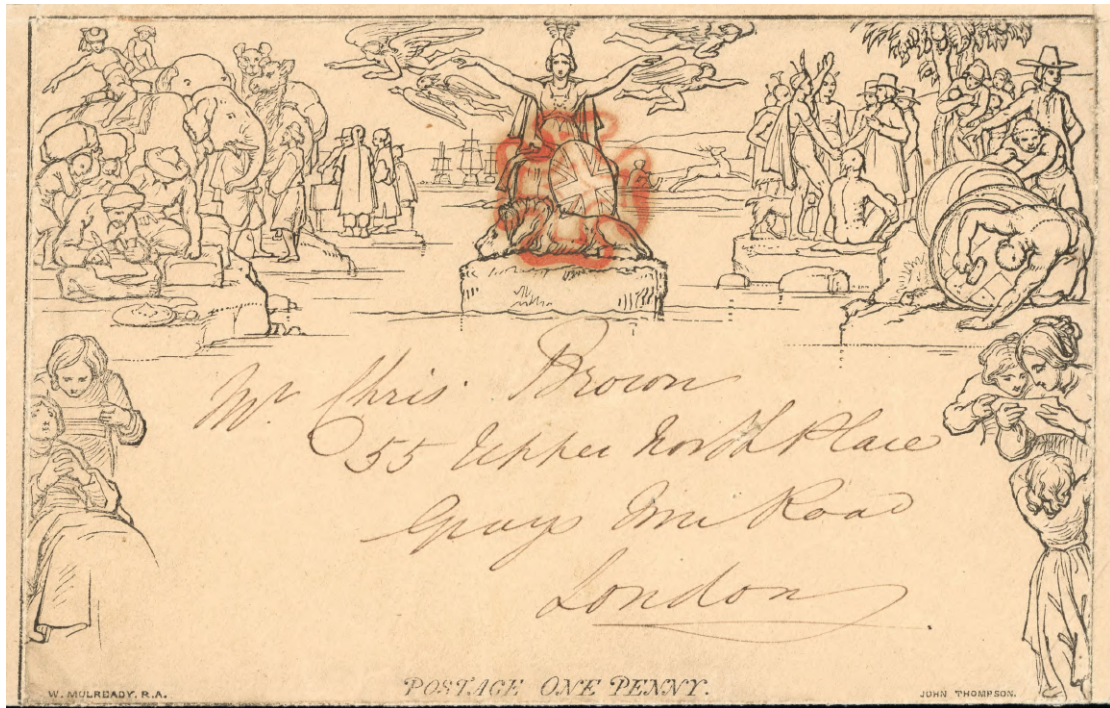 Mr. Chris. Brown
55 Upper North Place
Grays Inn Road
London
W. MULREADY, R.A.
POSTAGE ONE PENNY.
JOHN THOMPSON.